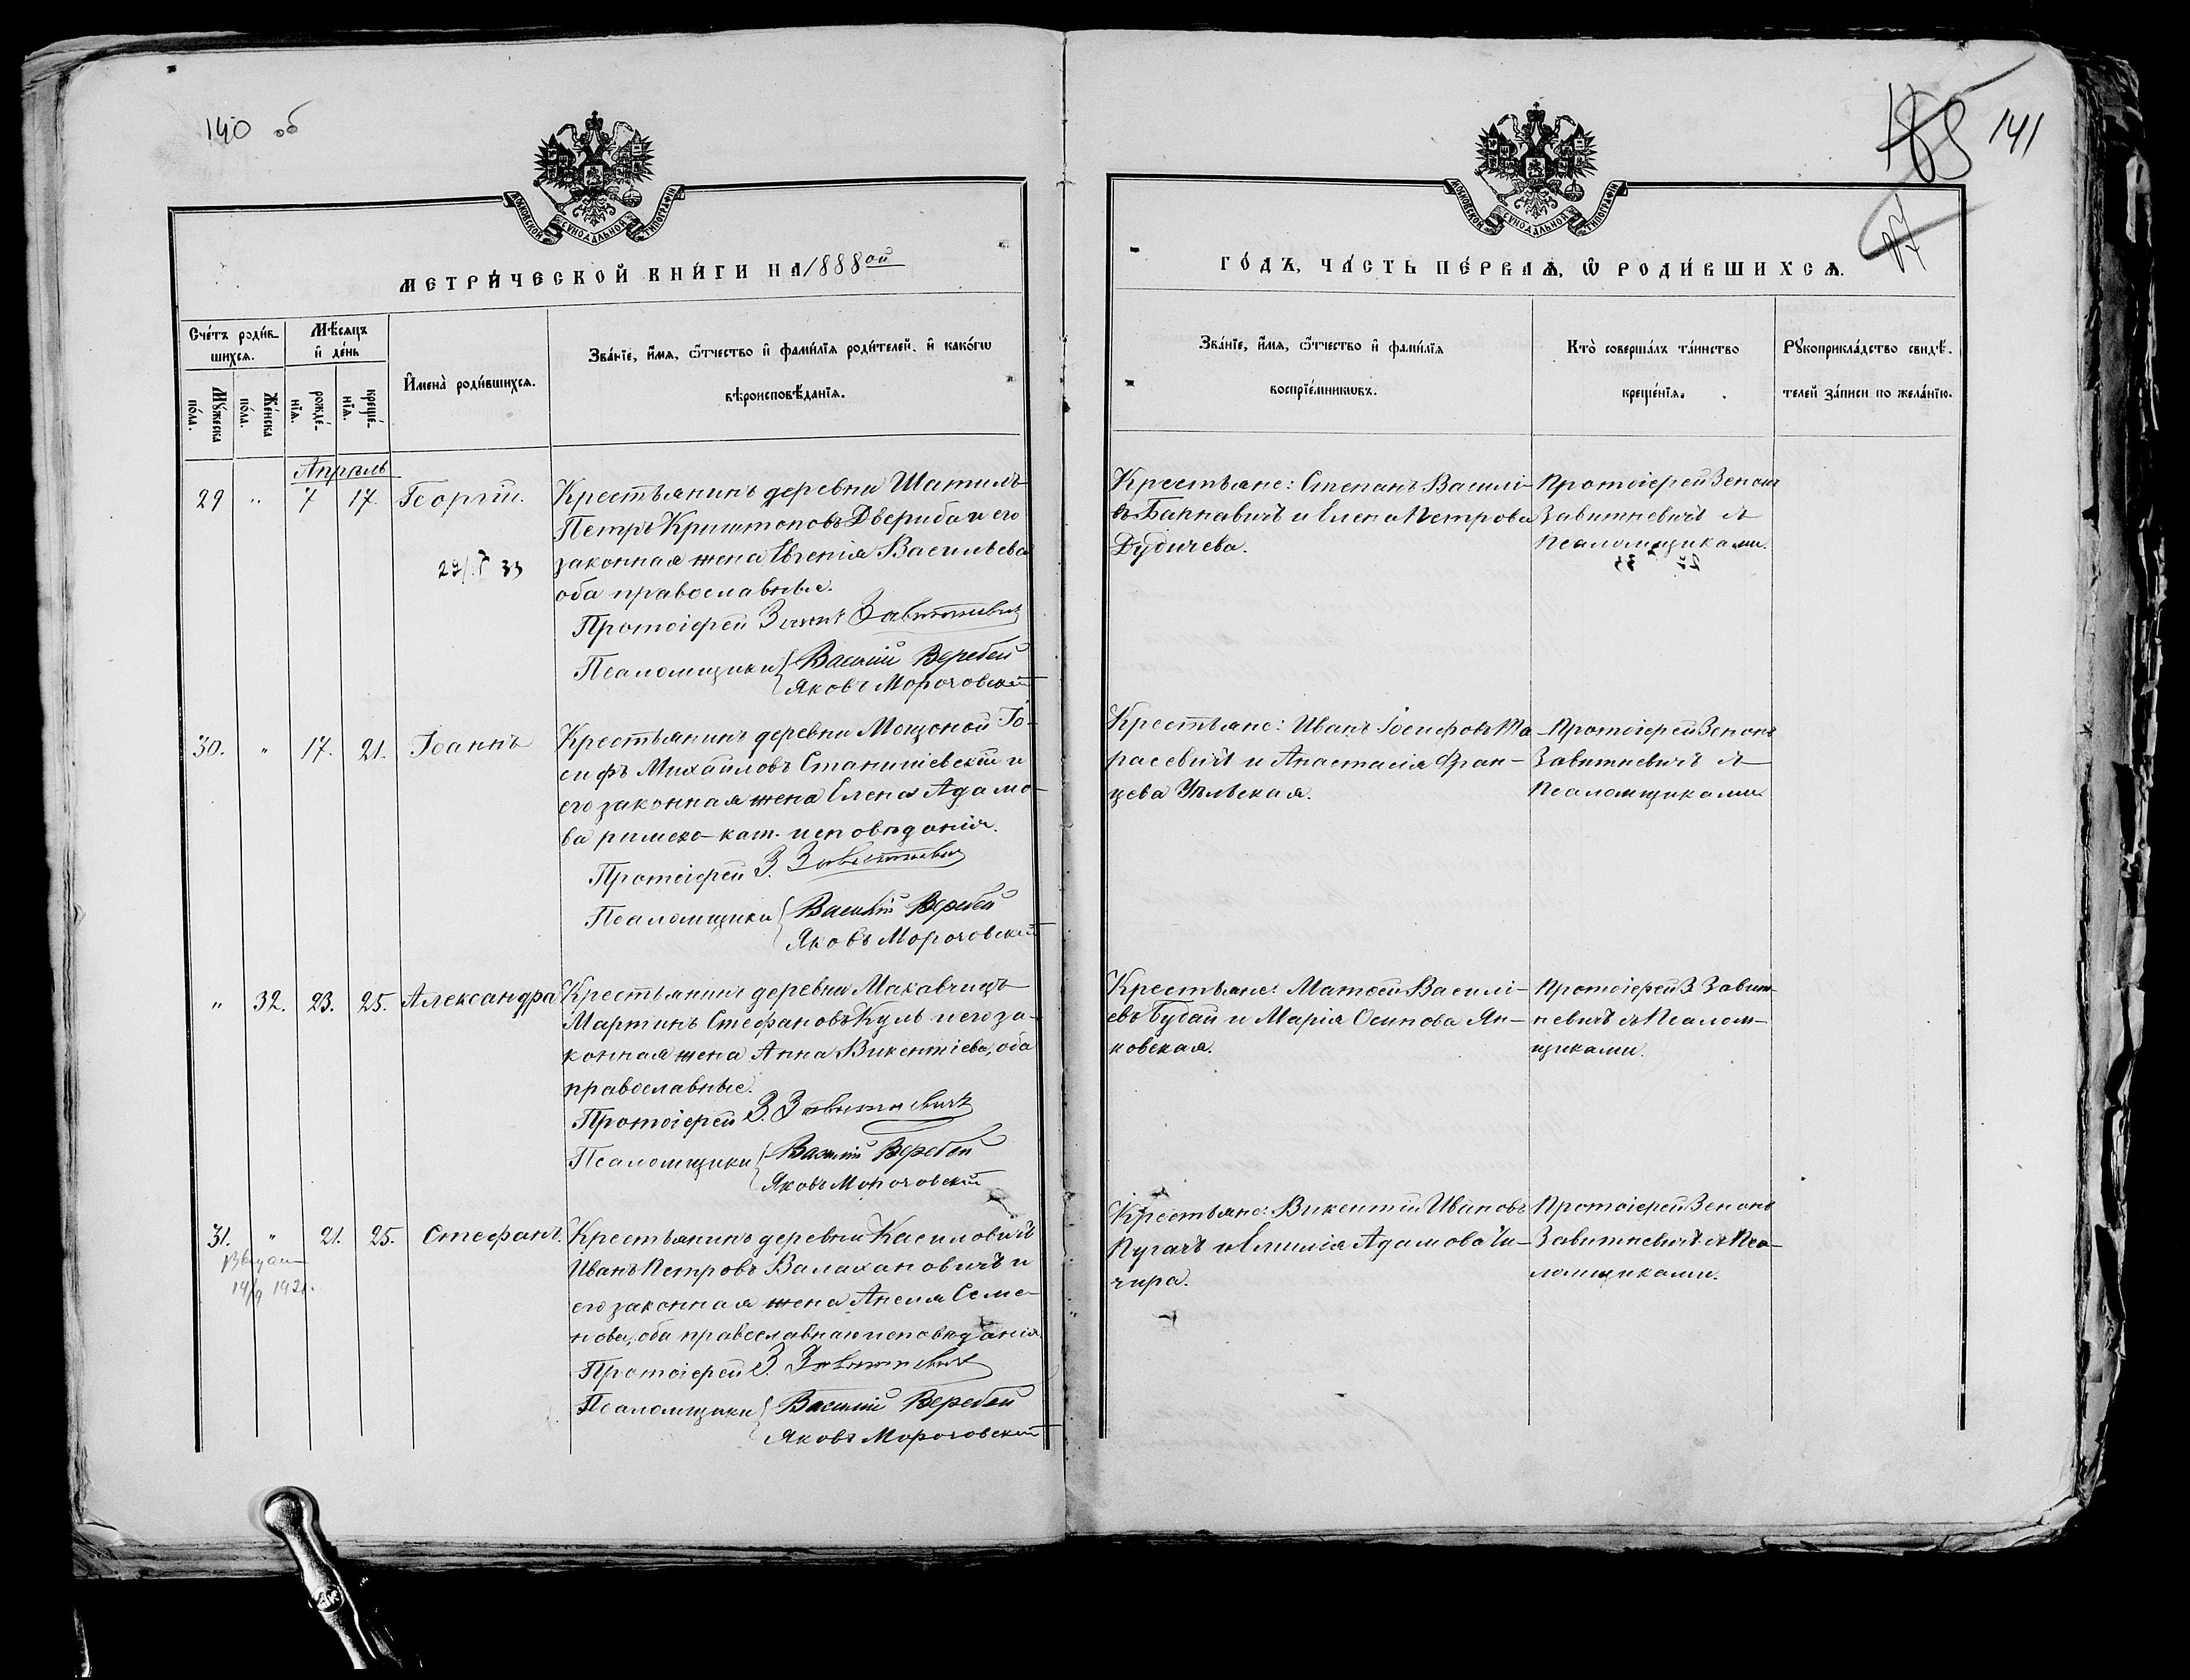 140 об
МОСКОВСКОЙ СѴНОДАЛЬНОЙ ТИПОГРАФІИ
МЕТРИ́ЧЕСКОЙ КНИ́ГИ НА 1888ой
Сче́тъ роди́в-
шихсѧ.
Мѣ́сяцъ
и҆ де́нь
Мꙋ́жеска
по́ла.
Же́нска
по́ла.
рожде́-
нїѧ.
креще́-
нїѧ.
И҆мена̀ роди́вшихсѧ.
Зва́нїе, и҆́мѧ, ѻ҆́тчество и҆ фами́лїѧ роди́телей, и҆ како́гѡ
вѣроисповѣ́данїѧ.
Апрѣль
29 " 7 17. Георгій.
Крестьянинъ деревни Шатилъ
Петръ Криштоповъ Двериба и его
законная жена Евгенія Васильева
оба православные.
29/ 33
Протоіерей Зенонъ Завитневичъ
Псаломщики { Василій Веребей
Яковъ Морочовскій
30. " 17. 21. Іоаннъ
Крестьянинъ деревни Мощоной Іо-
сифъ Михайловъ Станишевскій и
его законная жена Елена Адамо-
ва римско-кат. исповѣданія.
Протоіерей З. Завитневичъ
Псаломщики { Василій Веребей
Яковъ Морочовскій
" 32. 23. 25. Александра
Крестьянинъ деревни Макавчицъ
Мартинъ Стефановъ Куль и его за-
конная жена Анна Викентіева, оба
православные.
Протоіерей З. Завитневичъ
Псаломщики { Василій Веребей
Яковъ Морочовскій
31. " 21. 25. Стефанъ.
14/9 192
Крестьянинъ деревни Касиловичъ
Иванъ Петровъ Валахановичъ и
его законная жена Анеля Семе-
нова, оба православнаго исповѣданія.
Протоіерей З. Завитневичъ
Псаломщики { Василій Веребей
Яковъ Морочовскій
185 141
МОСКОВСКОЙ СѴНОДАЛЬНОЙ ТИПОГРАФІИ
ГО́ДЪ, ЧА́СТЬ ПЕ́РВАѦ, Ѡ҆ РОДИ́ВШИХСѦ.
Зва́нїе, и҆́мѧ, ѻ҆́тчество и҆ фами́лїѧ
воспрїе́мникѡвъ.
Кто̀ соверша́лъ та́инство
креще́нїѧ.
Рꙋкоприкла́дство свидѣ́-
телей за́писи по жела́нїю.
Крестьяне: Степанъ Василі-
въ Банкавичъ и Елена Петрова
Дудичева.
Протоіерей Зенонъ
Завитневичъ съ
Псаломщиками.
Крестьяне: Иванъ Іосифовъ Та-
расевичъ и Анастасія Фран-
цева Ульская.
Протоіерей Зенонъ
Завитневичъ съ
Псаломщиками
Крестьяне: Матѳей Василі-
евъ Будай и Марія Осипова Ян-
ковская.
Протоіерей З Завит-
невичъ съ Псалом-
щиками.
Крестьяне: Викентій Ивановъ
Пугачъ и Емилія Адамова Чи-
чира.
Протоіерей Зенонъ
Завитневичъ съ Пса-
ломщиками.